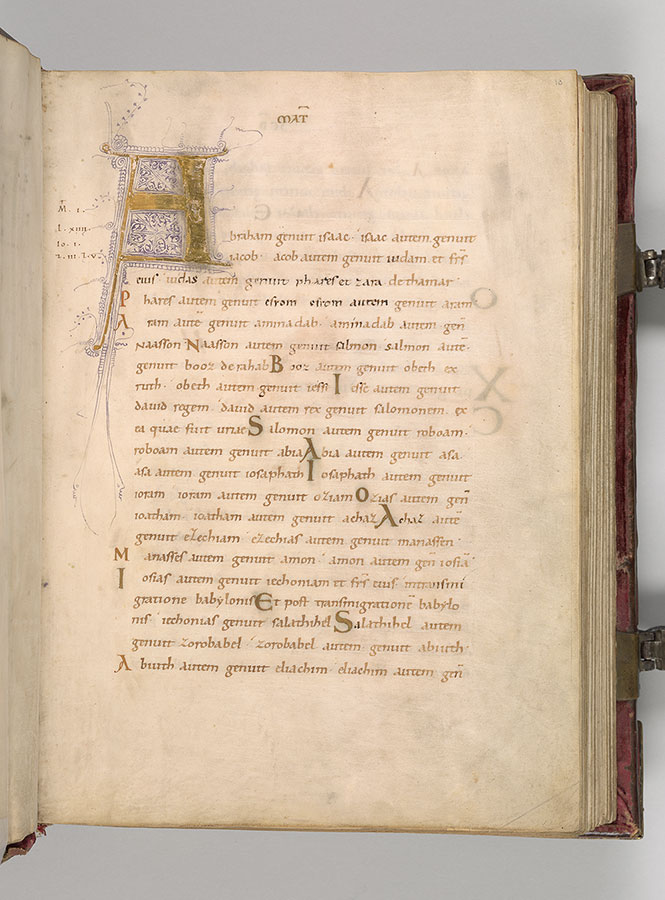 MAT̄
Abraham genuit isaac · isaac autem genuit
iacob · acob autem genuit iudam et frs̄
eius iudas autem genuit phares et zara dethamar
Phares autem genuit esrom esrom autem genuit aram
Aram autē genuit aminadab · aminadab autem gen̄
naasson Naasson autem genuit salmon salmon autē
genuit booz derahab Booz autem genuit obeth ex
ruth · obeth autem genuit iessi Iesse autem genuit
david regem · david autem rex genuit salomonem · ex
ea quae fuit uriae Salomon autem genuit roboam ·
roboam autem genuit abia Abia autem genuit asa
asa autem genuit iosaphath Iosaphath autem genuit
ioram ioram autem genuit oziam Ozias autem gen̄
ioatham · ioatham autem genuit achaz Achaz autē
genuit ezechiam ezechias autem genuit manassen ·
Manasses autem genuit amon · amon autem gen̄ iosiā
Iosias autem genuit iechoniam et frs̄ eius intransmi
gratione babylonis Et post transmigrationē babylo
nis iechonias genuit salathihel Salathihel autem
genuit zorobabel · zorobabel autem genuit abiuth ·
Abiuth autem genuit eliachim · eliachim autem gen̄